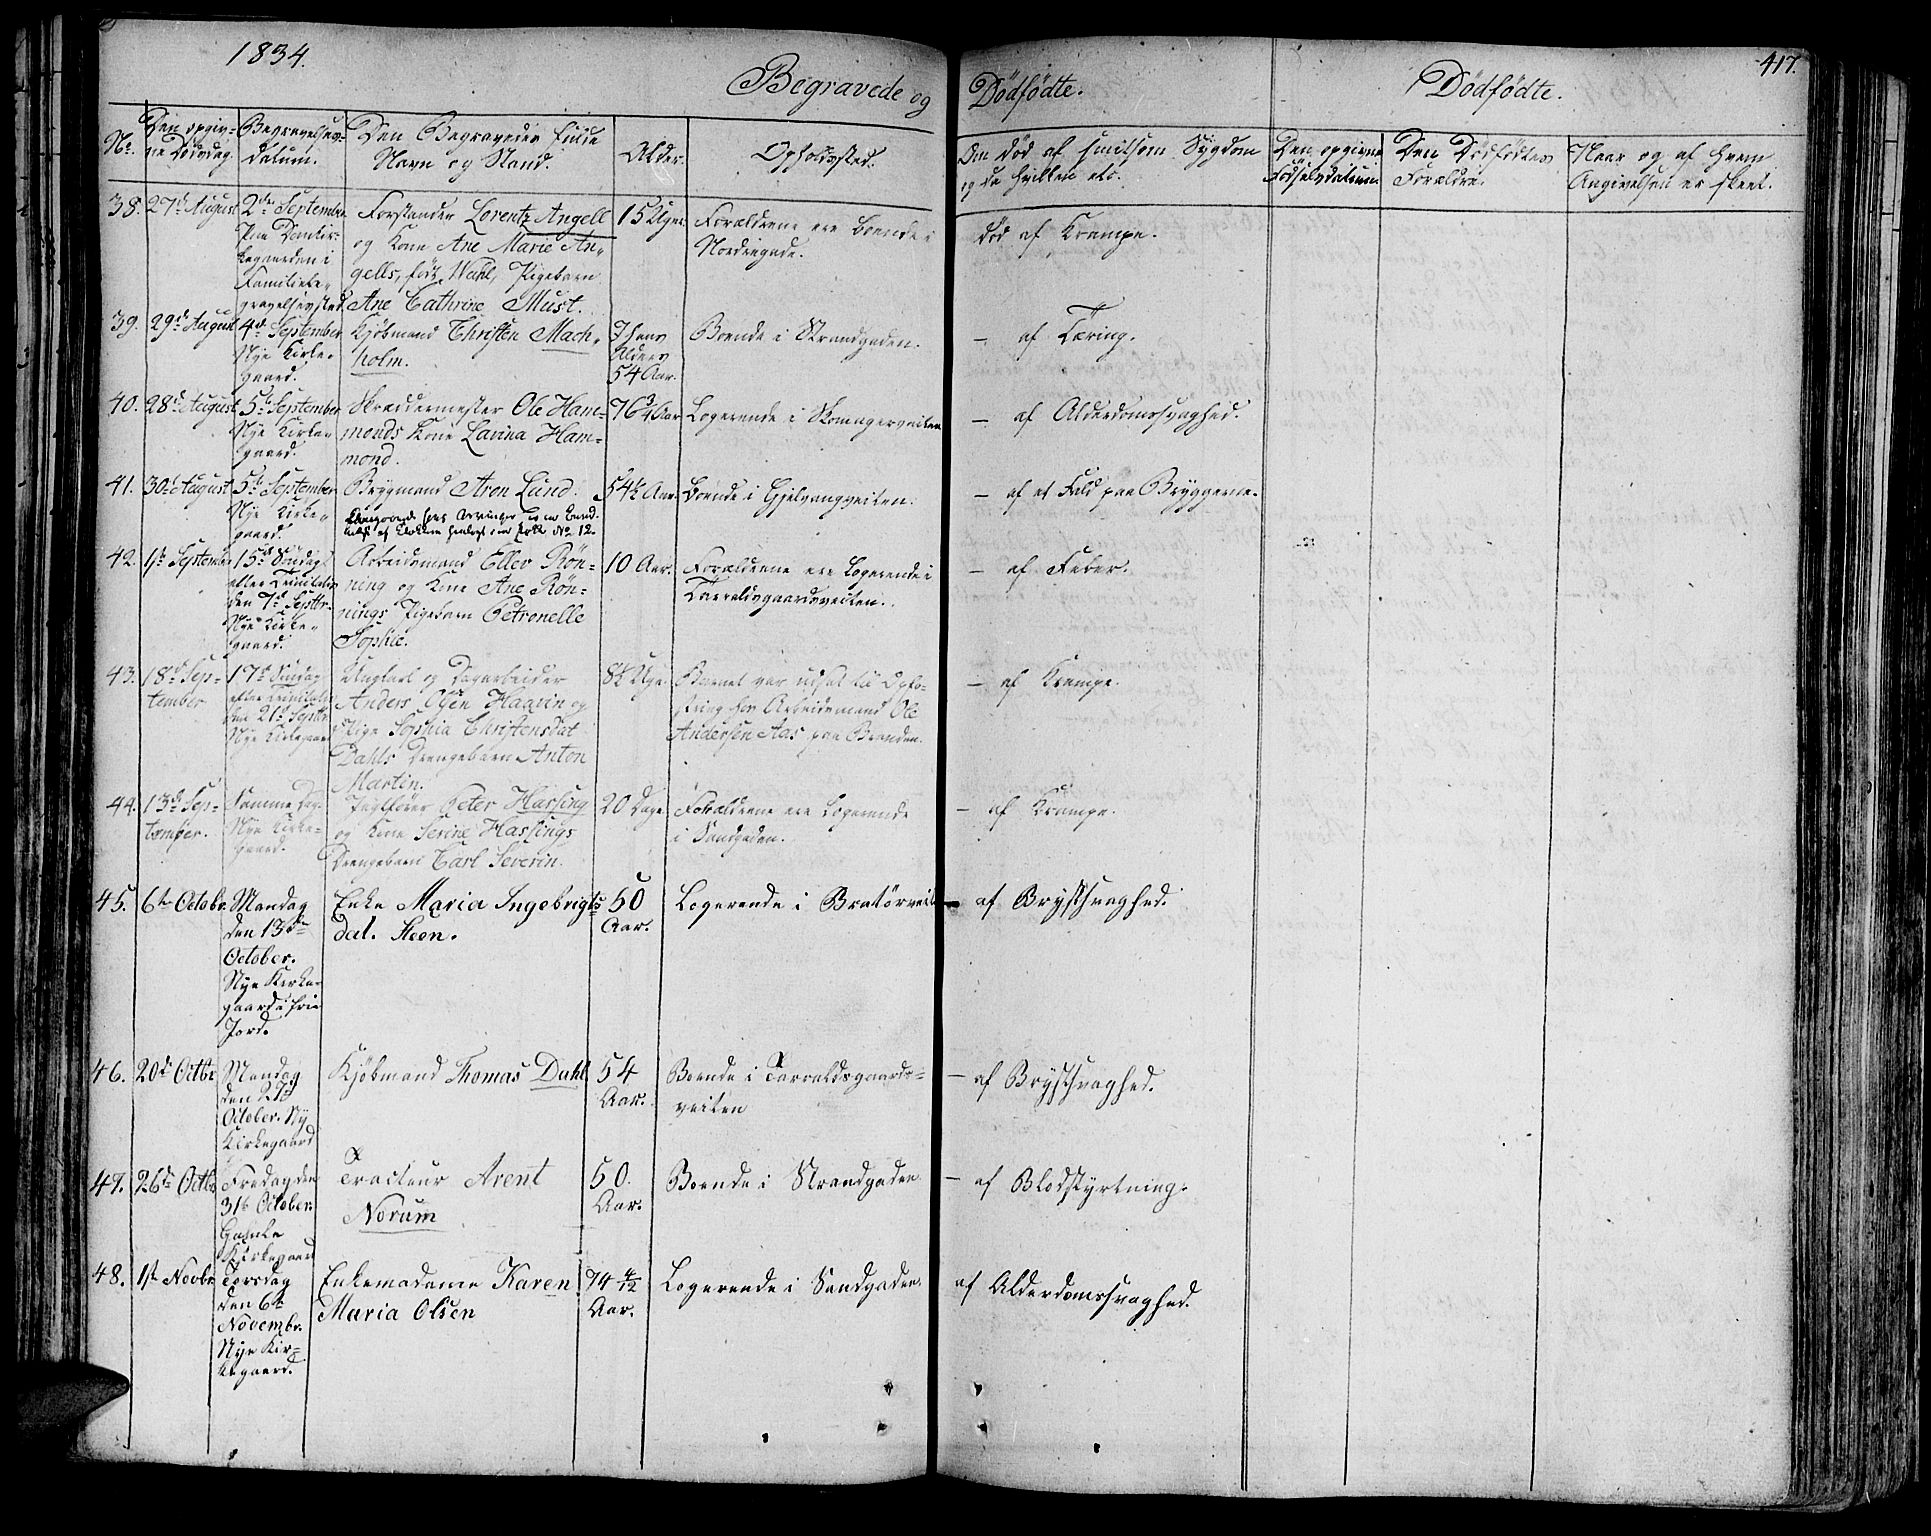 1834.
417.
Begravede og Dödfödte.
Dödfödte.
No.
Den opgiv-
ne Dødsdag.
Begravelses-
datum.
Den Begravedes fulde
Navn og Stand.
Alder.
Opholdssted.
Om død af smitsom Sygdom
og da hvilken etc.
Den opgivne
Födselsdatum.
Den Dödfödtes
Forældre.
Naar og af hvem
Angivelsen er skeet.
38. 27d August
2den September
Paa Domkir-
kegaarden i
Familiebe-
gravelsessted.
Forstander Lorentz Angell
og Kone Ane Marie An-
gells, født Wahl, Pigebarn
Ane Cathrine Must.
15 Uger
Forældrene ere Boende i
Nordregade.
død af Krampe.
39. 29d August
4d September
Nye Kirke-
gaard.
Kjöbmand Christen Mach-
holm.
I hans
Alders
54 Aar.
Boende i Strandgaden.
— af Tæring.
40. 28d August
5t September
Nye Kirke-
gaard.
Skræddermester Ole Ham-
monds Kone Lavina Ham-
mond.
76 3/4 Aar
Logerende i Skomagerveiten
— af Alderdomssvaghed.
41. 30t August
5t September
Nye Kirke-
gaard.
Brygmand Aren Lund.
54½ Aar.
Boende i Gjelvangveiten.
— af et Fald paa Bryggerne.
42. 1ste September
15d Söndag
efter Trinitatis
den 7d Septbr.
Nye Kirke-
gaard.
Arbeidsmand Ellev Rön-
ning og Kone Ane Rön-
nings Pigebarn Petronelle
Sophie.
10 Aar.
Forældrene ere Logerende i
Taraldsgaardsveiten.
— af Feber.
43. 18d Sep-
tember
17d Söndag
efter Trinitatis
den 21d Septbr.
Nye Kirkegaard
Ungkarl og Dagarbeider
Anders Olsen Haavin og
Pige Sophia Christensdat.
Dahls Drengebarn Anton
Martin.
8½ Uge
Barnet var udsat til Opfo-
string hos Arbeidsmand Ole
Andersen Aas paa Baranden.
— af Krampe.
44. 13d Sep-
tember.
Samme Dag.
Nye Kirke-
gaard.
Peter Hassing
og Kone Serine Hassings
Drengebarn Carl Severin.
20 Dage
Forældrene ere Logerende
i Sandgaden.
— af Krampe.
45. 6te Octobr.
Mandag
den 13de
October.
Nye Kirke-
gaard i frie
Jord.
Enke Maria Ingebrigts
dat. Steen.
50
Aar.
Logerende i Bratörveit
— af Brystsvaghed.
46. 20d Octbr
Mandag
den 27d
October. Ny
Kirkegaard
Kjöbmand Thomas Dahl
54
Aar.
Boende i Tarraldsgaards-
veiten
— af Brystsvaghed.
47. 26de Octbr
Fredag den
31te October.
Gamle
Kirkegaard
Tracteur Arent
Norum
50.
Aar.
Boende i Strandgaden
— af Blodstyrtning.
48. 1ste Novbr
Torsdag
den 6te
Novembr.
Nye Kir-
kegaard.
Enkemadame Karen
Maria Olsen
74 4/12
Aar.
Logerende i Sandgaden.
af Alderdomssvaghed.